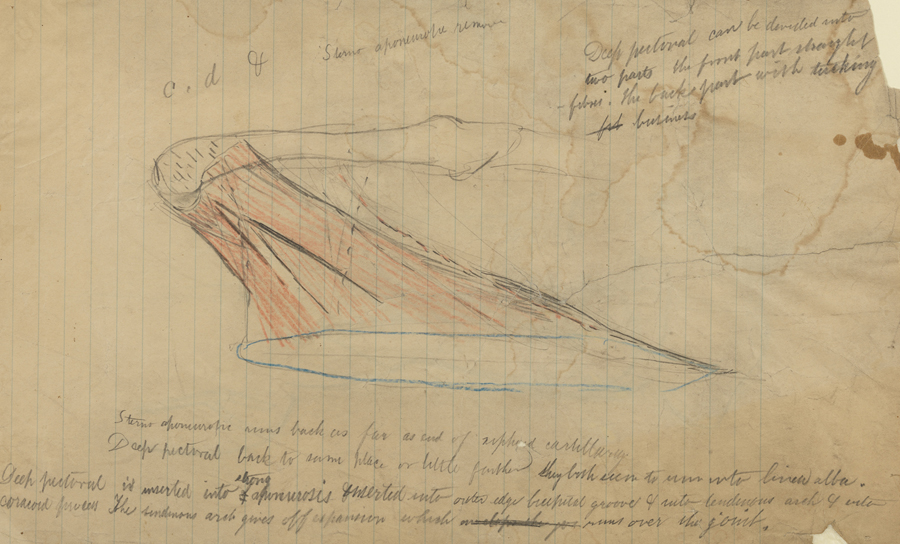 c, d &
Sterno aponeurotic remove
Deep pectoral can be devided into
two parts the front part straight
fibri. The back part with tucking
business
Sterno aponeurotic runs back as far as end of xiphoid cartillage
Deep pectoral back to same place or little further They both seem to run into linea alba.
Deep pectoral is inserted into strong aponurosis inserted into outer edge bicipital groove & into tendinous arch & into
coracoid process The tendinous arch gives off expansion which runs over the joint.